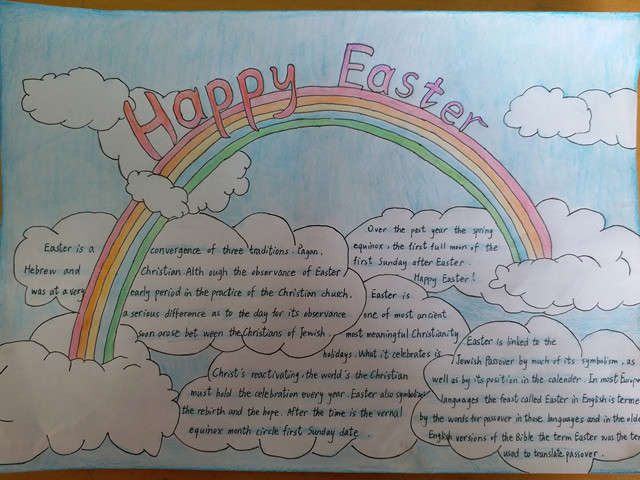 Happy Easter
Over the past year the spring
equinox, the first full moon of the
first Sunday after Easter.
Happy Easter!
Easter is a convergence of three traditions. Pagan,
Hebrew and Christian. Alth ough the observance of Easter
was at a very early period in the practice of the Christian church,
a serious difference as to the day for its observance
soon arose bet ween the Christians of Jewish.
Easter is
one of most ancient
most meaningful Christianity
holidays. What it celebrates is
Christ's reactivating, the world's the Christian
must hold the celebration every year. Easter also symbolizes
the rebirth and the hope. After the time is the vernal
equinox month circle first Sunday date.
Easter is linked to the
Jewish Passover by much of its symbolism, as
well as by its position in the calender. In most Europe
languages the feast called Easter in English is terme
by the words for passover in those languages and in the olde
English versions of the Bible the term Easter was the te
used to translate passover.